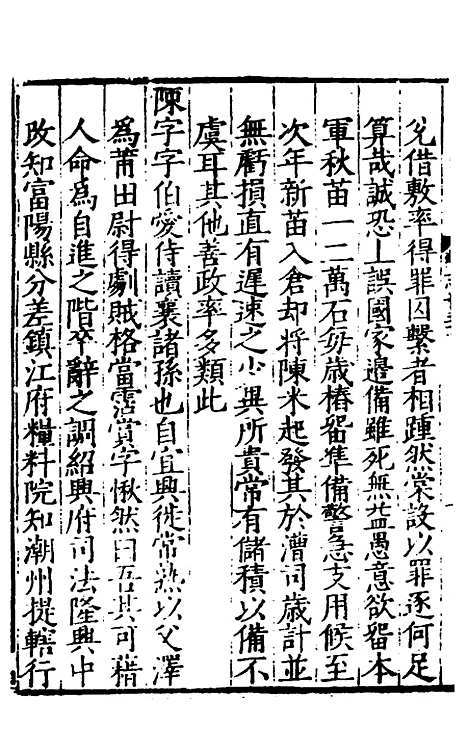 兑借敷率得罪囚繫者相踵然棠設以罪逐何足
算哉誠恐上誤國家邊備雖死無益愚意欲畱本
軍秋苗一二萬石每歲樁畱準備警急支用候至
次年新苗入倉却將陳米起發其於漕司歲計並
無虧損直有遲速之少異所貴常有儲積以備不
虞耳其他善政率多類此
陳字字伯愛侍讀襄諸孫也自宜興徙常熟以父澤
為莆田尉得劇賊格當霑賞字愀然曰吾其可藉
人命為自進之階卒辭之調紹興府司法隆興中
改知富陽縣分差鎮江府糧料院知潮州提轄行